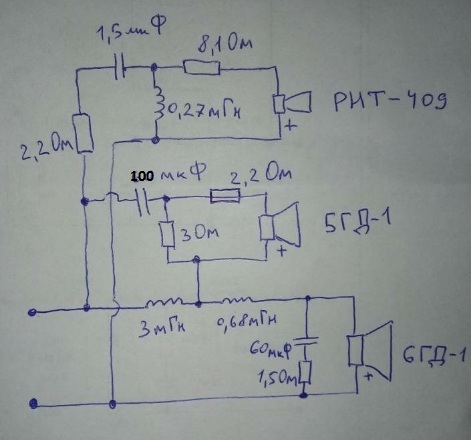 1,5мкФ
8,1Ом
0,27мГн
РИТ-409
+
2,2Ом
100 мкФ
2,2Ом
3Ом
5ГД-1
+
3мГн
0,68мГн
60мкФ
1,5Ом
6ГД-1
+